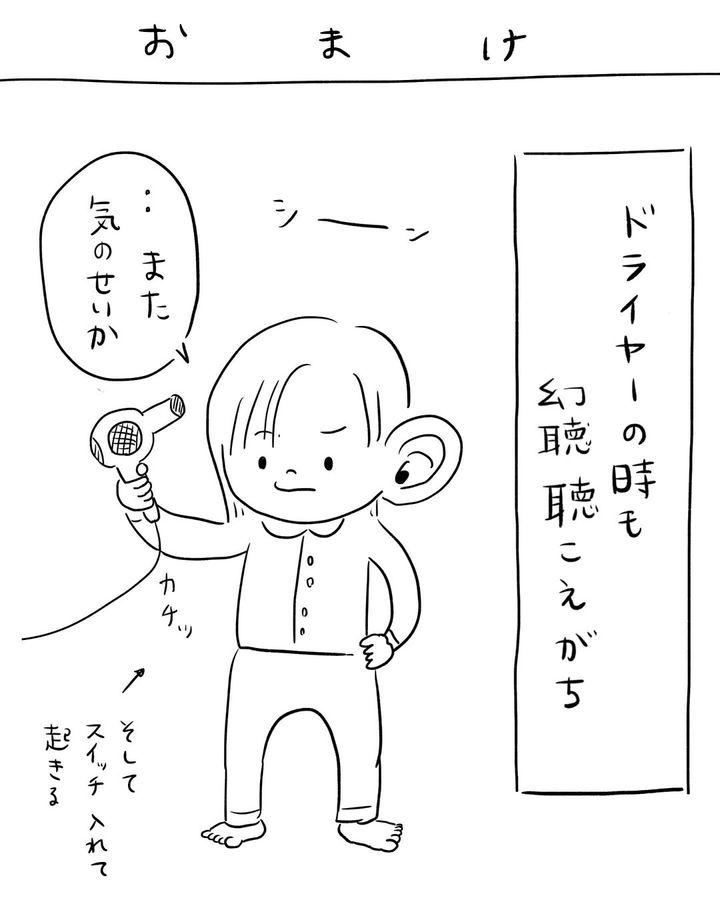 おまけ
ドライヤーの時も
幻聴 聴こえがち
シーン
‥また
気のせいか
カチッ
そして
スイッチ入れて
起きる